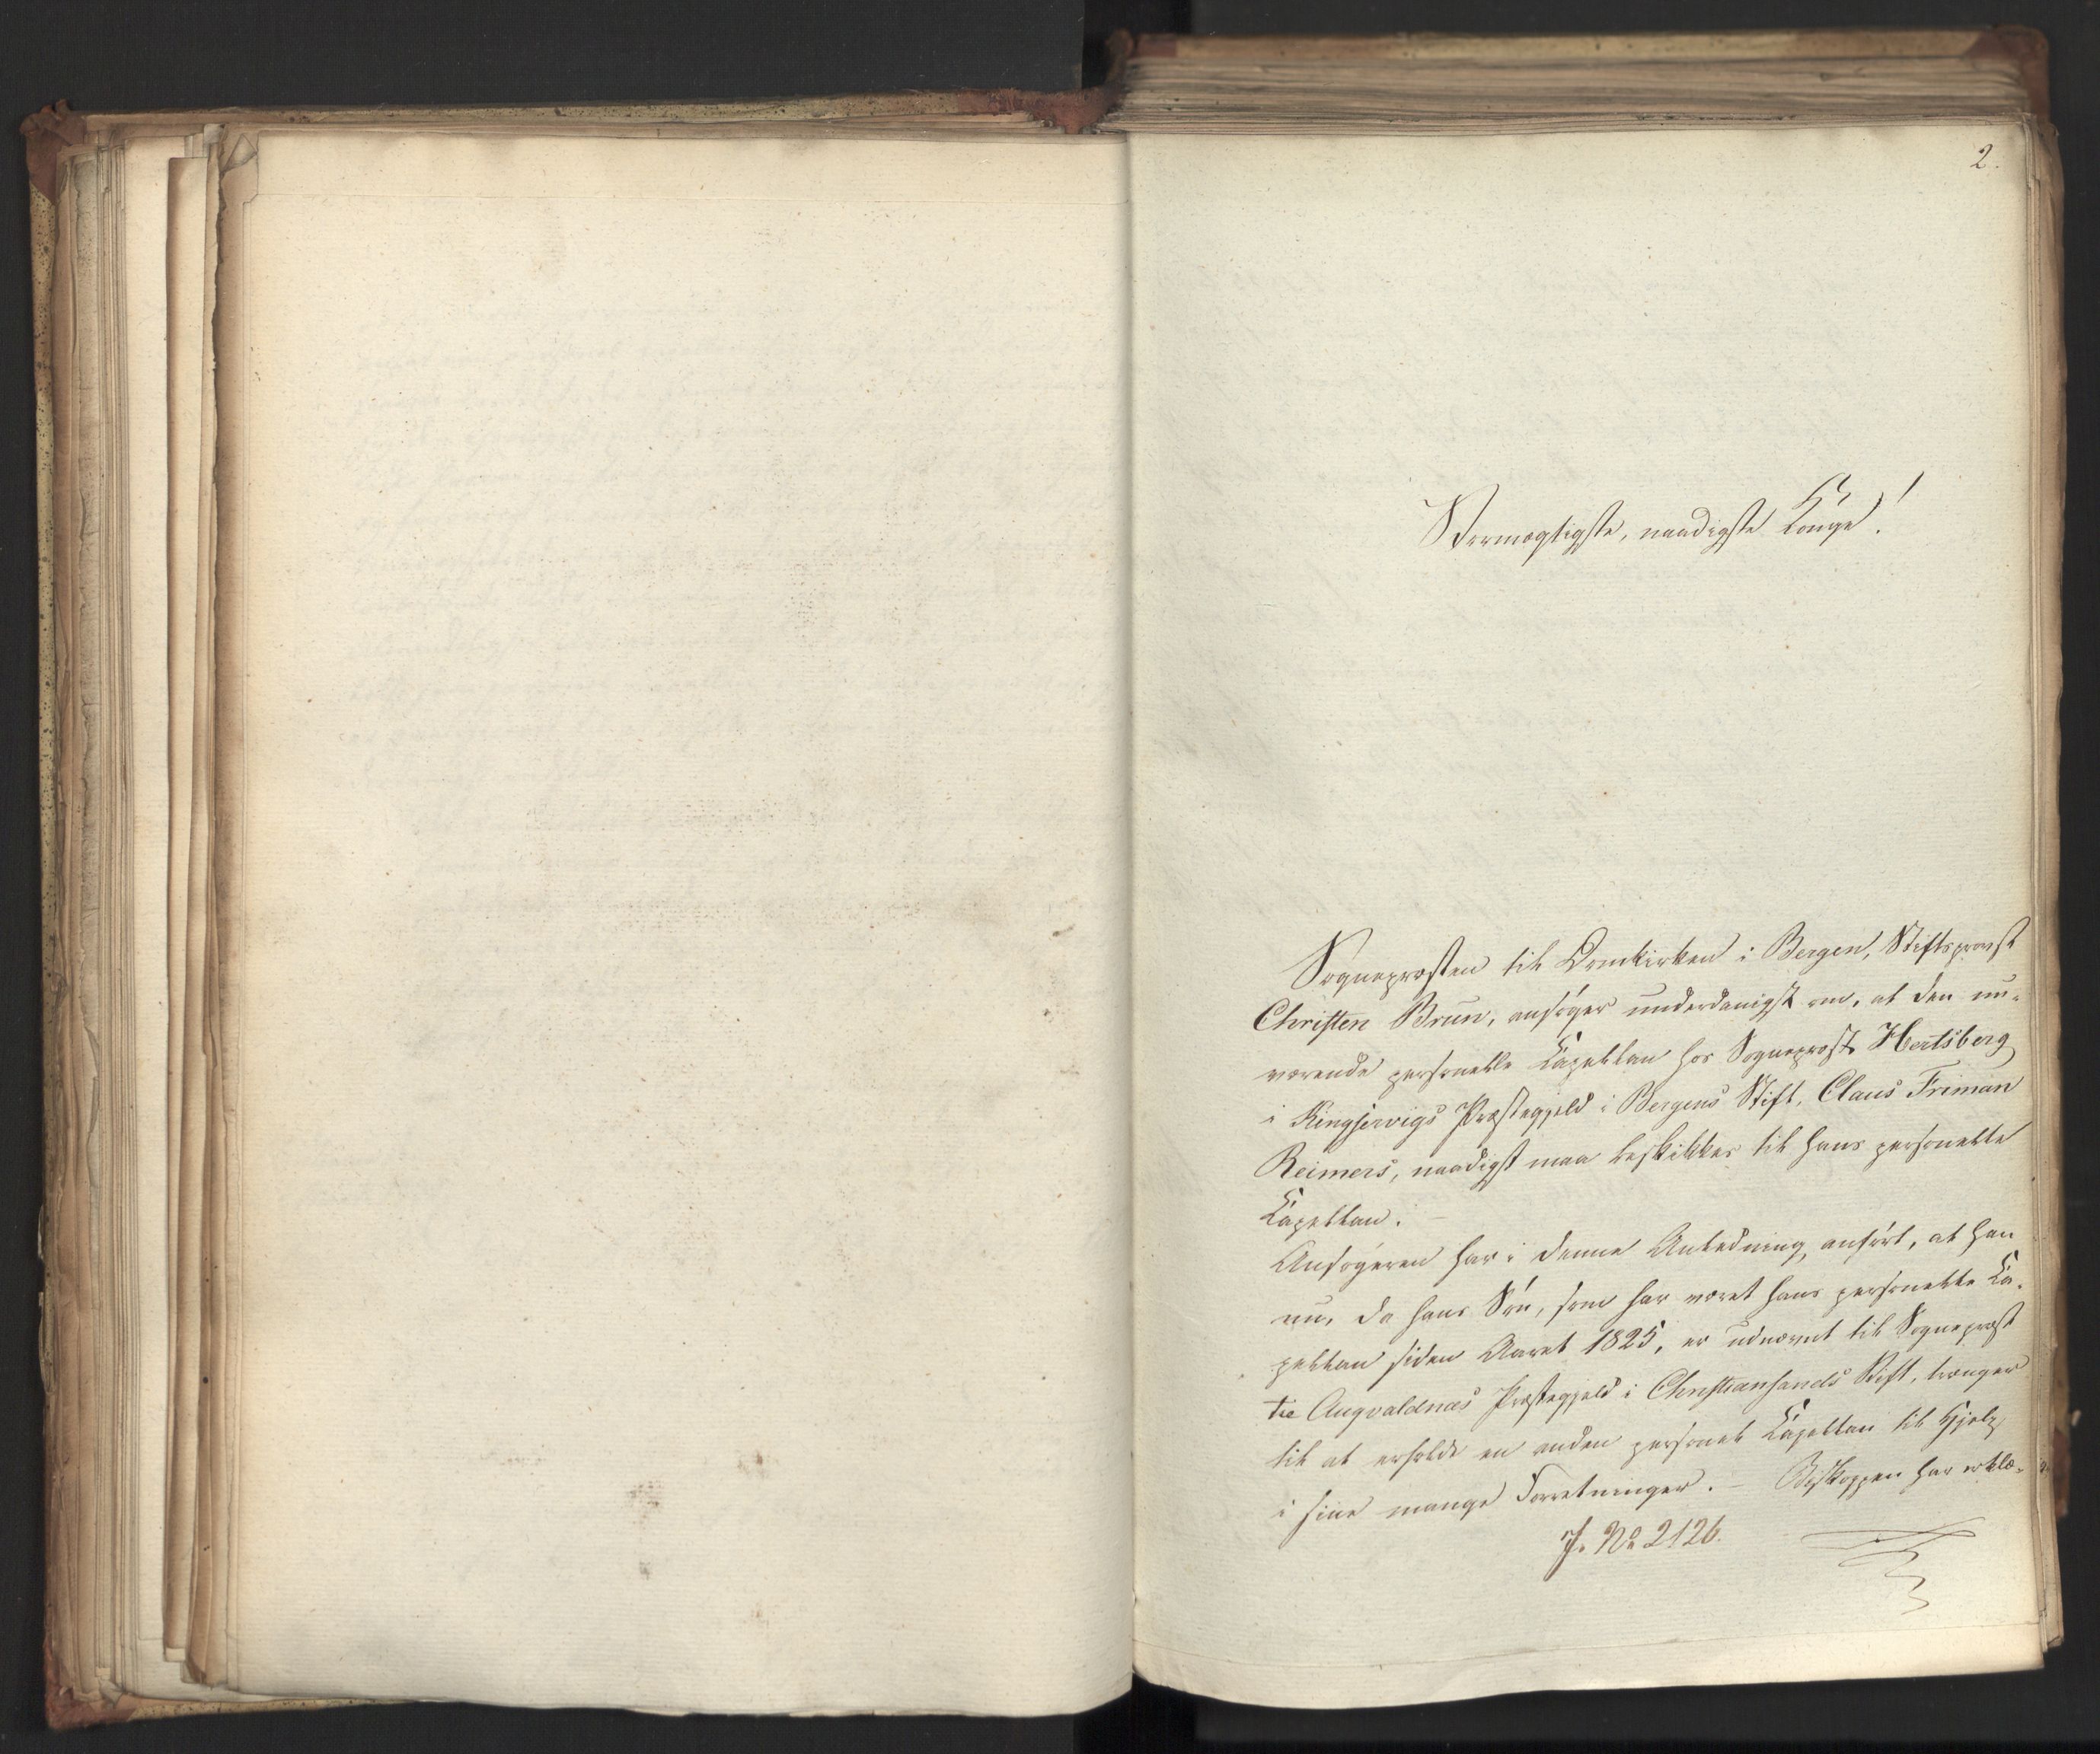 2.
Stormægtigste, naadigste Konge!
Sognepræsten til Domkirken i Bergen, Stiftsprovst
Christen Brun, ansøger underdanigst om, at den nu-
værende personelle Kapellan hos Sognepræst Hertsberg
i Kingservigs Præstegjeld i Bergens Stift, Claus Friman
Reimers, naadigst maa beskikkes til hans personelle
Kapellan. –
Ansøgeren har i denne Anledning anført, at han
nu, da hans Søn, som har været hans personelle Ka-
pellan siden Aaret 1825, er udnævnt til Sognepræst
til Augvaldnæs Præstegjeld i Christiansands Stift, trænger
til at erholde en anden personel Kapellan til Hjelp
i sine mange Forretninger. – Biskoppen har erklæ-
J. No 2126.